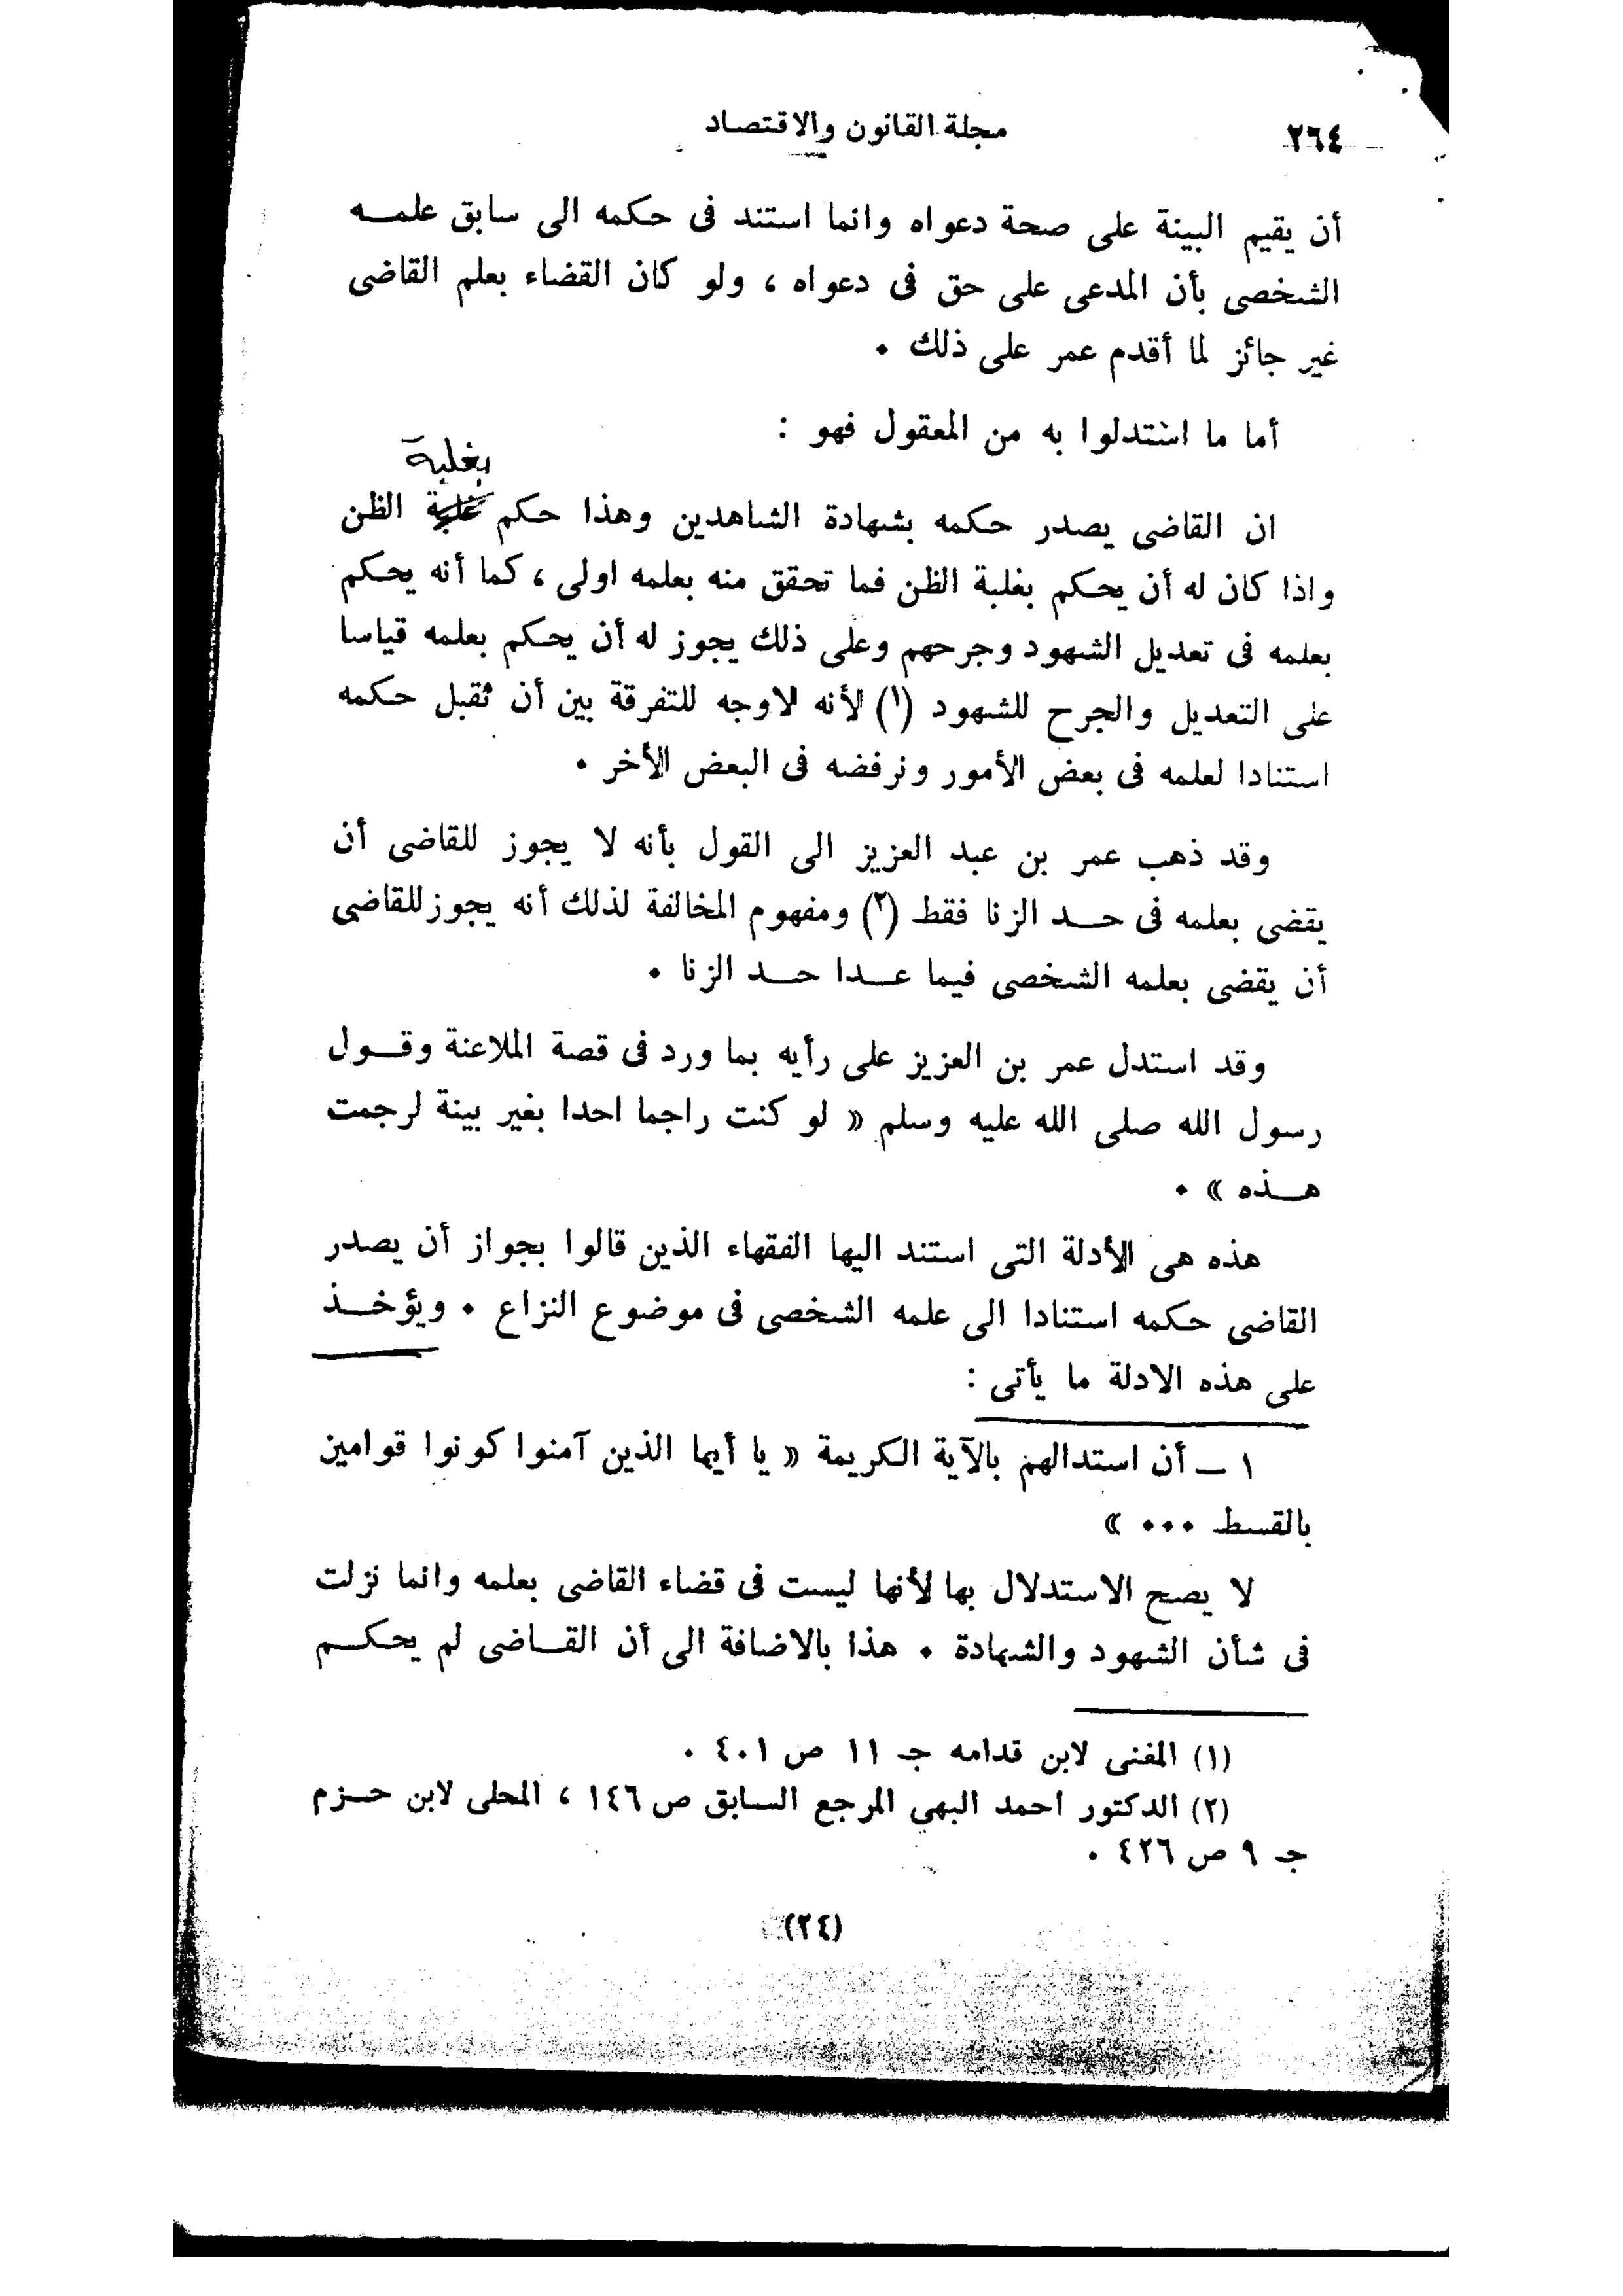 ٢٦٤
مجلة القانون والاقتصاد
أن يقيم البينة على صحة دعواه وانما استند فى حكمه الى سابق علمـــه
الشخصى بأن المدعى على حق فى دعواه ، ولو كان القضاء بعلم القاضى
غير جائز لما أقدم عمر على ذلك .
أما ما استدلوا به من المعقول فهو :
بغلبة
ان القاضى يصدر حكمه بشهادة الشاهدين وهذا حكم غلبة الظن
واذا كان له أن يحكم بغلبة الظن فما تحقق منه بعلمه اولى ، كما أنه يحكم
بعلمه فى تعديل الشهود وجرحهم وعلى ذلك يجوز له أن يحكم بعلمه قياسا
على التعديل والجرح للشهود (١) لأنه لاوجه للتفرقة بين أن نقبل حكمه
استنادا لعلمه فى بعض الأمور ونرفضه فى البعض الأخر .
وقد ذهب عمر بن عبد العزيز الى القول بأنه لا يجوز للقاضى أن
يقضى بعلمه فى حـــد الزنا فقط (٢) ومفهوم المخالفة لذلك أنه يجوز للقاضى
أن يقضى بعلمه الشخصى فيما عـــدا حـــد الزنا .
وقد استدل عمر بن العزيز على رأيه بما ورد فى قصة الملاعنة وقـــول
رسول الله صلى الله عليه وسلم « لو كنت راجما احدا بغير بينة لرجمت
هـــذه » .
هذه هى الأدلة التى استند اليها الفقهاء الذين قالوا بجواز أن يصدر
القاضى حكمه استنادا الى علمه الشخصى فى موضوع النزاع . ويؤخـــذ
على هذه الادلة ما يأتى :
١ ــ أن استدالهم بالآية الكريمة « يا أيها الذين آمنوا كونوا قوامين
بالقسط ... »
لا يصح الاستدلال بها لأنها ليست فى قضاء القاضى بعلمه وانما نزلت
فى شأن الشهود والشهادة . هذا بالاضافة الى أن القـــاضى لم يحكـــم
(١) المغنى لابن قدامه جـ ١١ ص ٤٠١ .
(٢) الدكتور احمد البهى المرجع السابق ص ١٤٦ ، المحلى لابن حـــزم
جـ ٩ ص ٤٢٦ .
(٢٤)